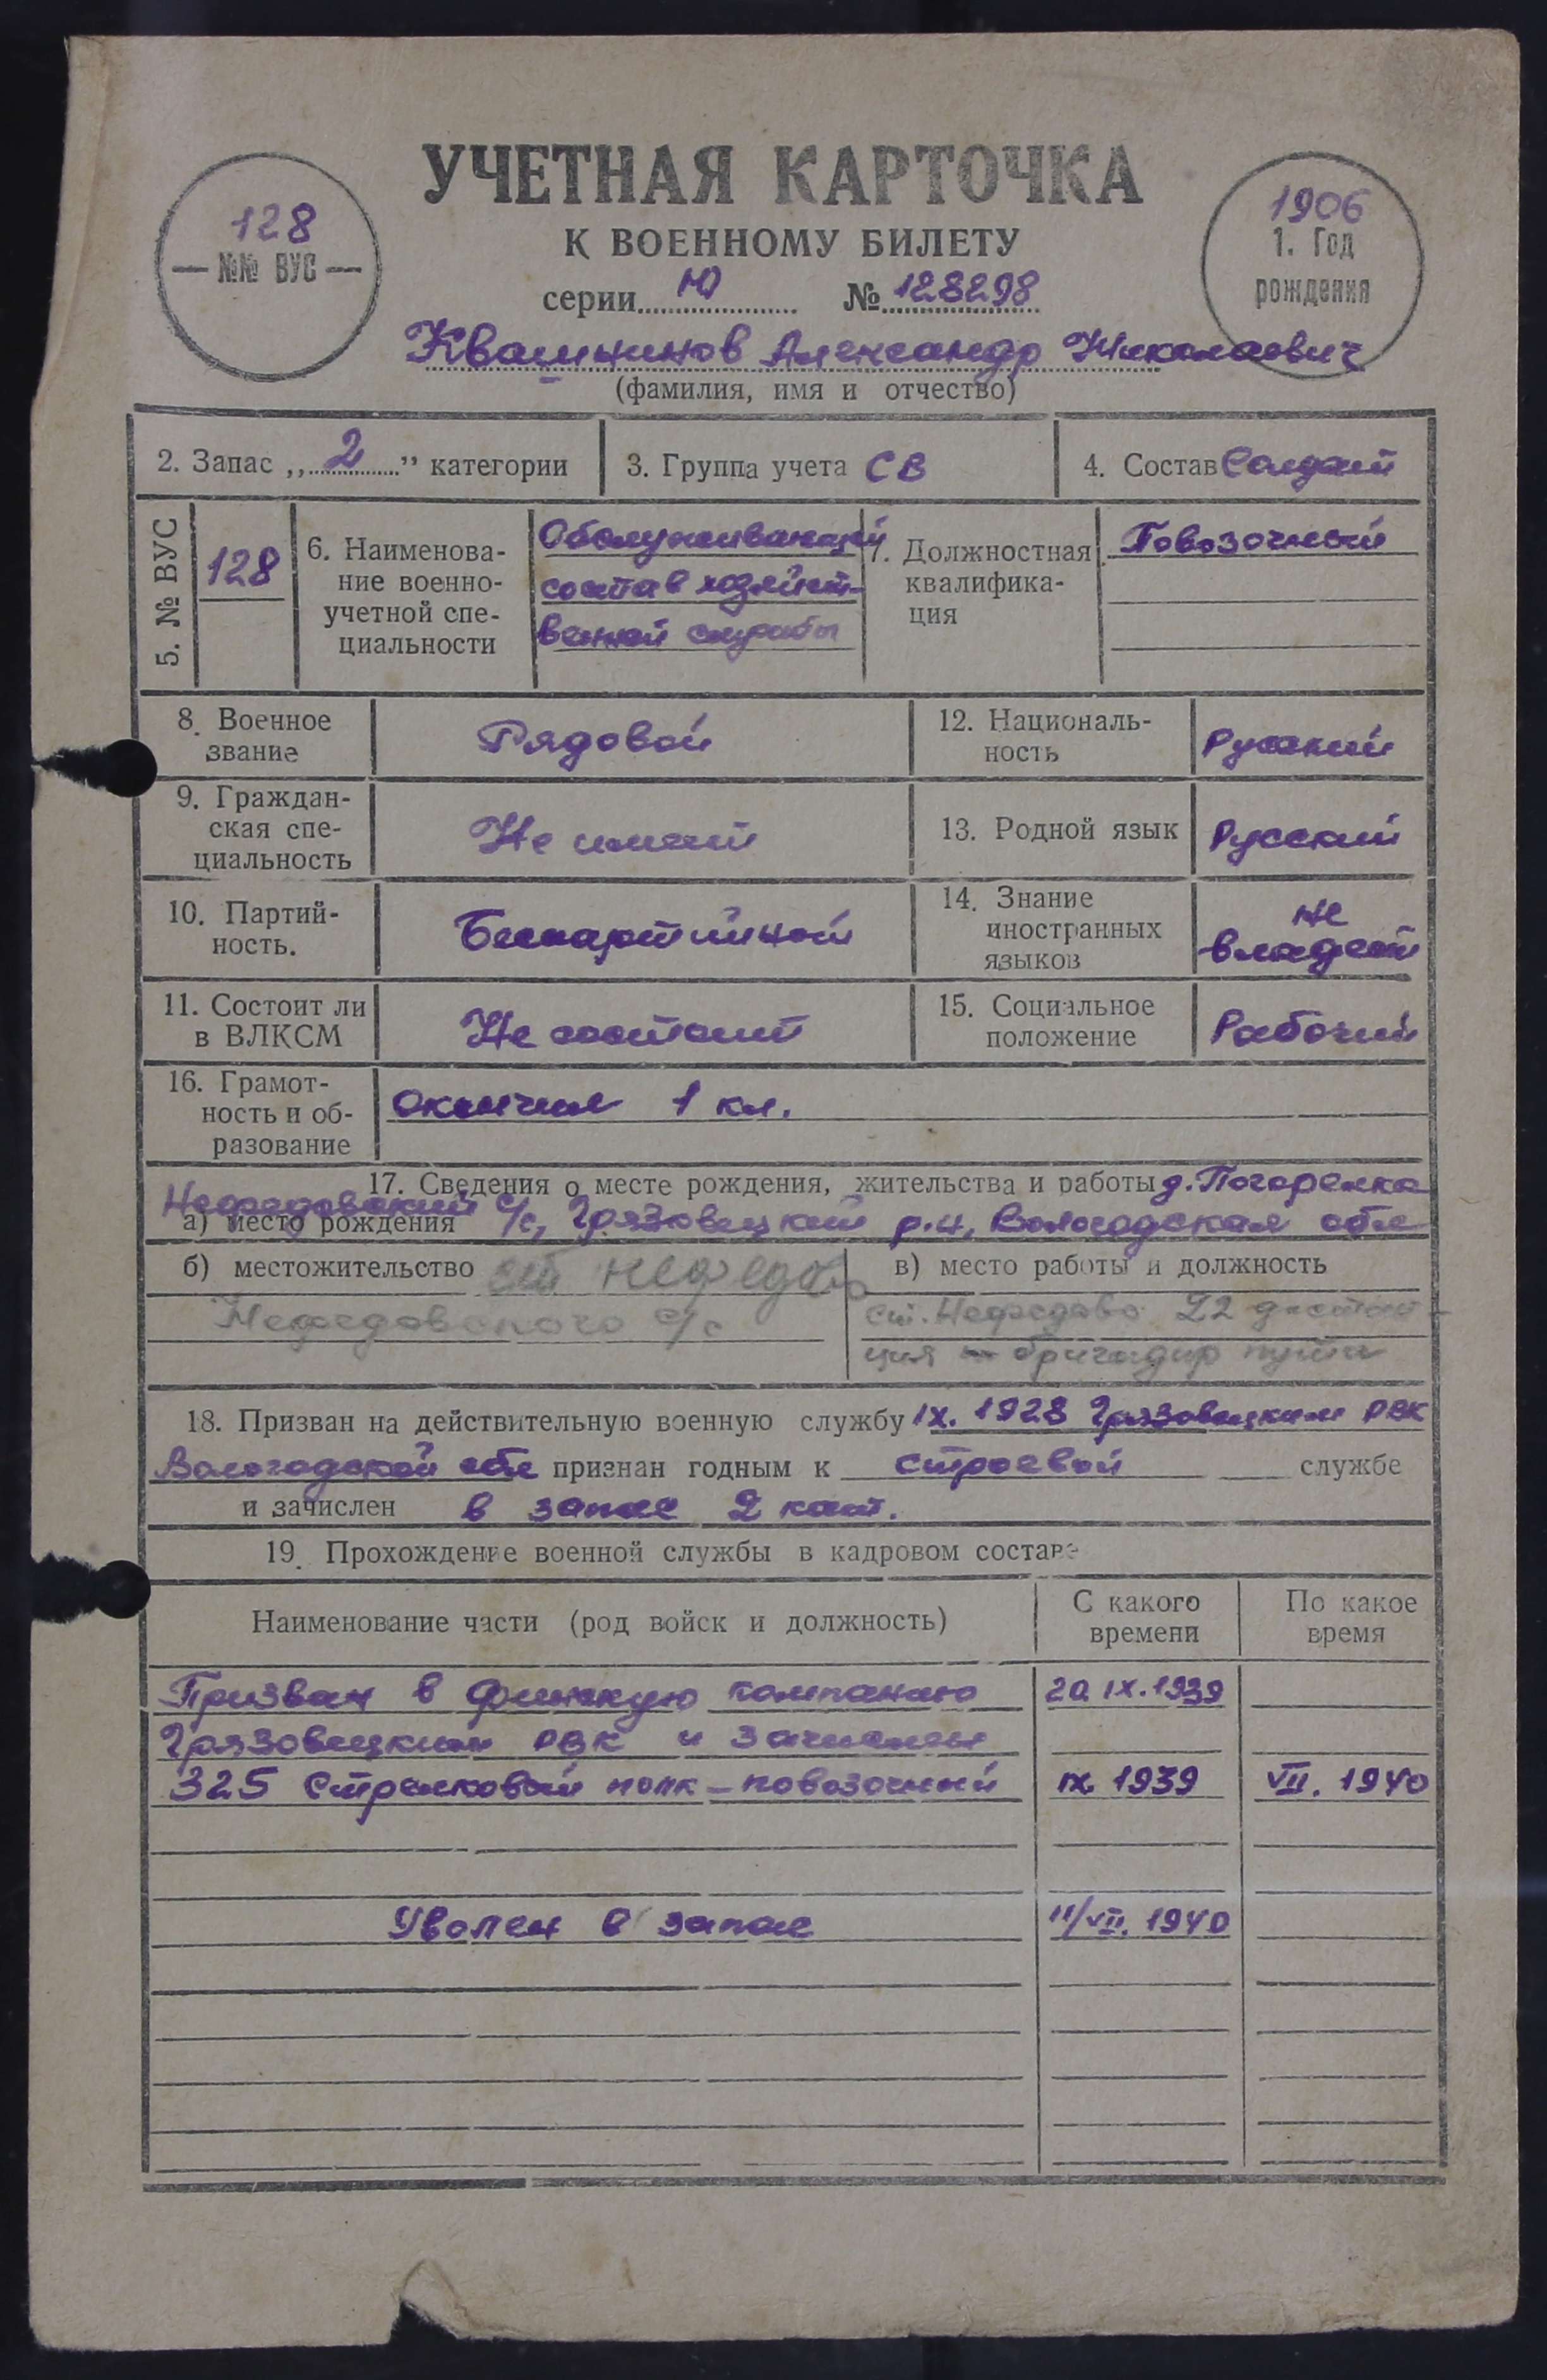 УЧЕТНАЯ КАРТОЧКА
К ВОЕННОМУ БИЛЕТУ
128
№№ ВУС
1906
1. Год
рождения
серии Ю № 128298
Квашнинов Александр Николаевич
(фамилия, имя и отчество)
2. Запас „2” категории
3. Группа учета СВ
4. Состав Солдат
5. № ВУС
128
6. Наименова-
ние военно-
учетной спе-
циальности
Обслуживающий
состав хозяйст-
венной службы
7. Должностная
квалифика-
ция
Повозочный
8. Военное
звание
Рядовой
12. Националь-
ность
Русский
9. Граждан-
ская спе-
циальность
Не имеет
13. Родной язык
Русский
10. Партий-
ность.
Беспартийной
14. Знание
иностранных
языков
не
владеет
11. Состоит ли
в ВЛКСМ
Не состоит
15. Социальное
положение
Рабочий
16. Грамот-
ность и об-
разование
окончил 1 кл.
17. Сведения о месте рождения, жительства и работы д. Погорелка
Нефедовский с/с, Грязовецкий р.н, Вологодская обл
а) место рождения
б) местожительство ст Нефедово
Нефедовского с/с
в) место работы и должность
ст. Нефедово 22 дистан-
ция бригадир пути
18. Призван на действительную военную службу IX. 1928 Грязовецким РВК
Вологодской обл признан годным к строевой службе
и зачислен в запас 2 кат.
19. Прохождение военной службы в кадровом составе
Наименование части (род войск и должность)
С какого
времени
По какое
время
Призван в финскую компанию 20 IX. 1939
Грязовецким РВК и зачислен
325 Стрелковый полк - повозочный IX 1939 VII. 1940
Уволен в запас 11/VII. 1940